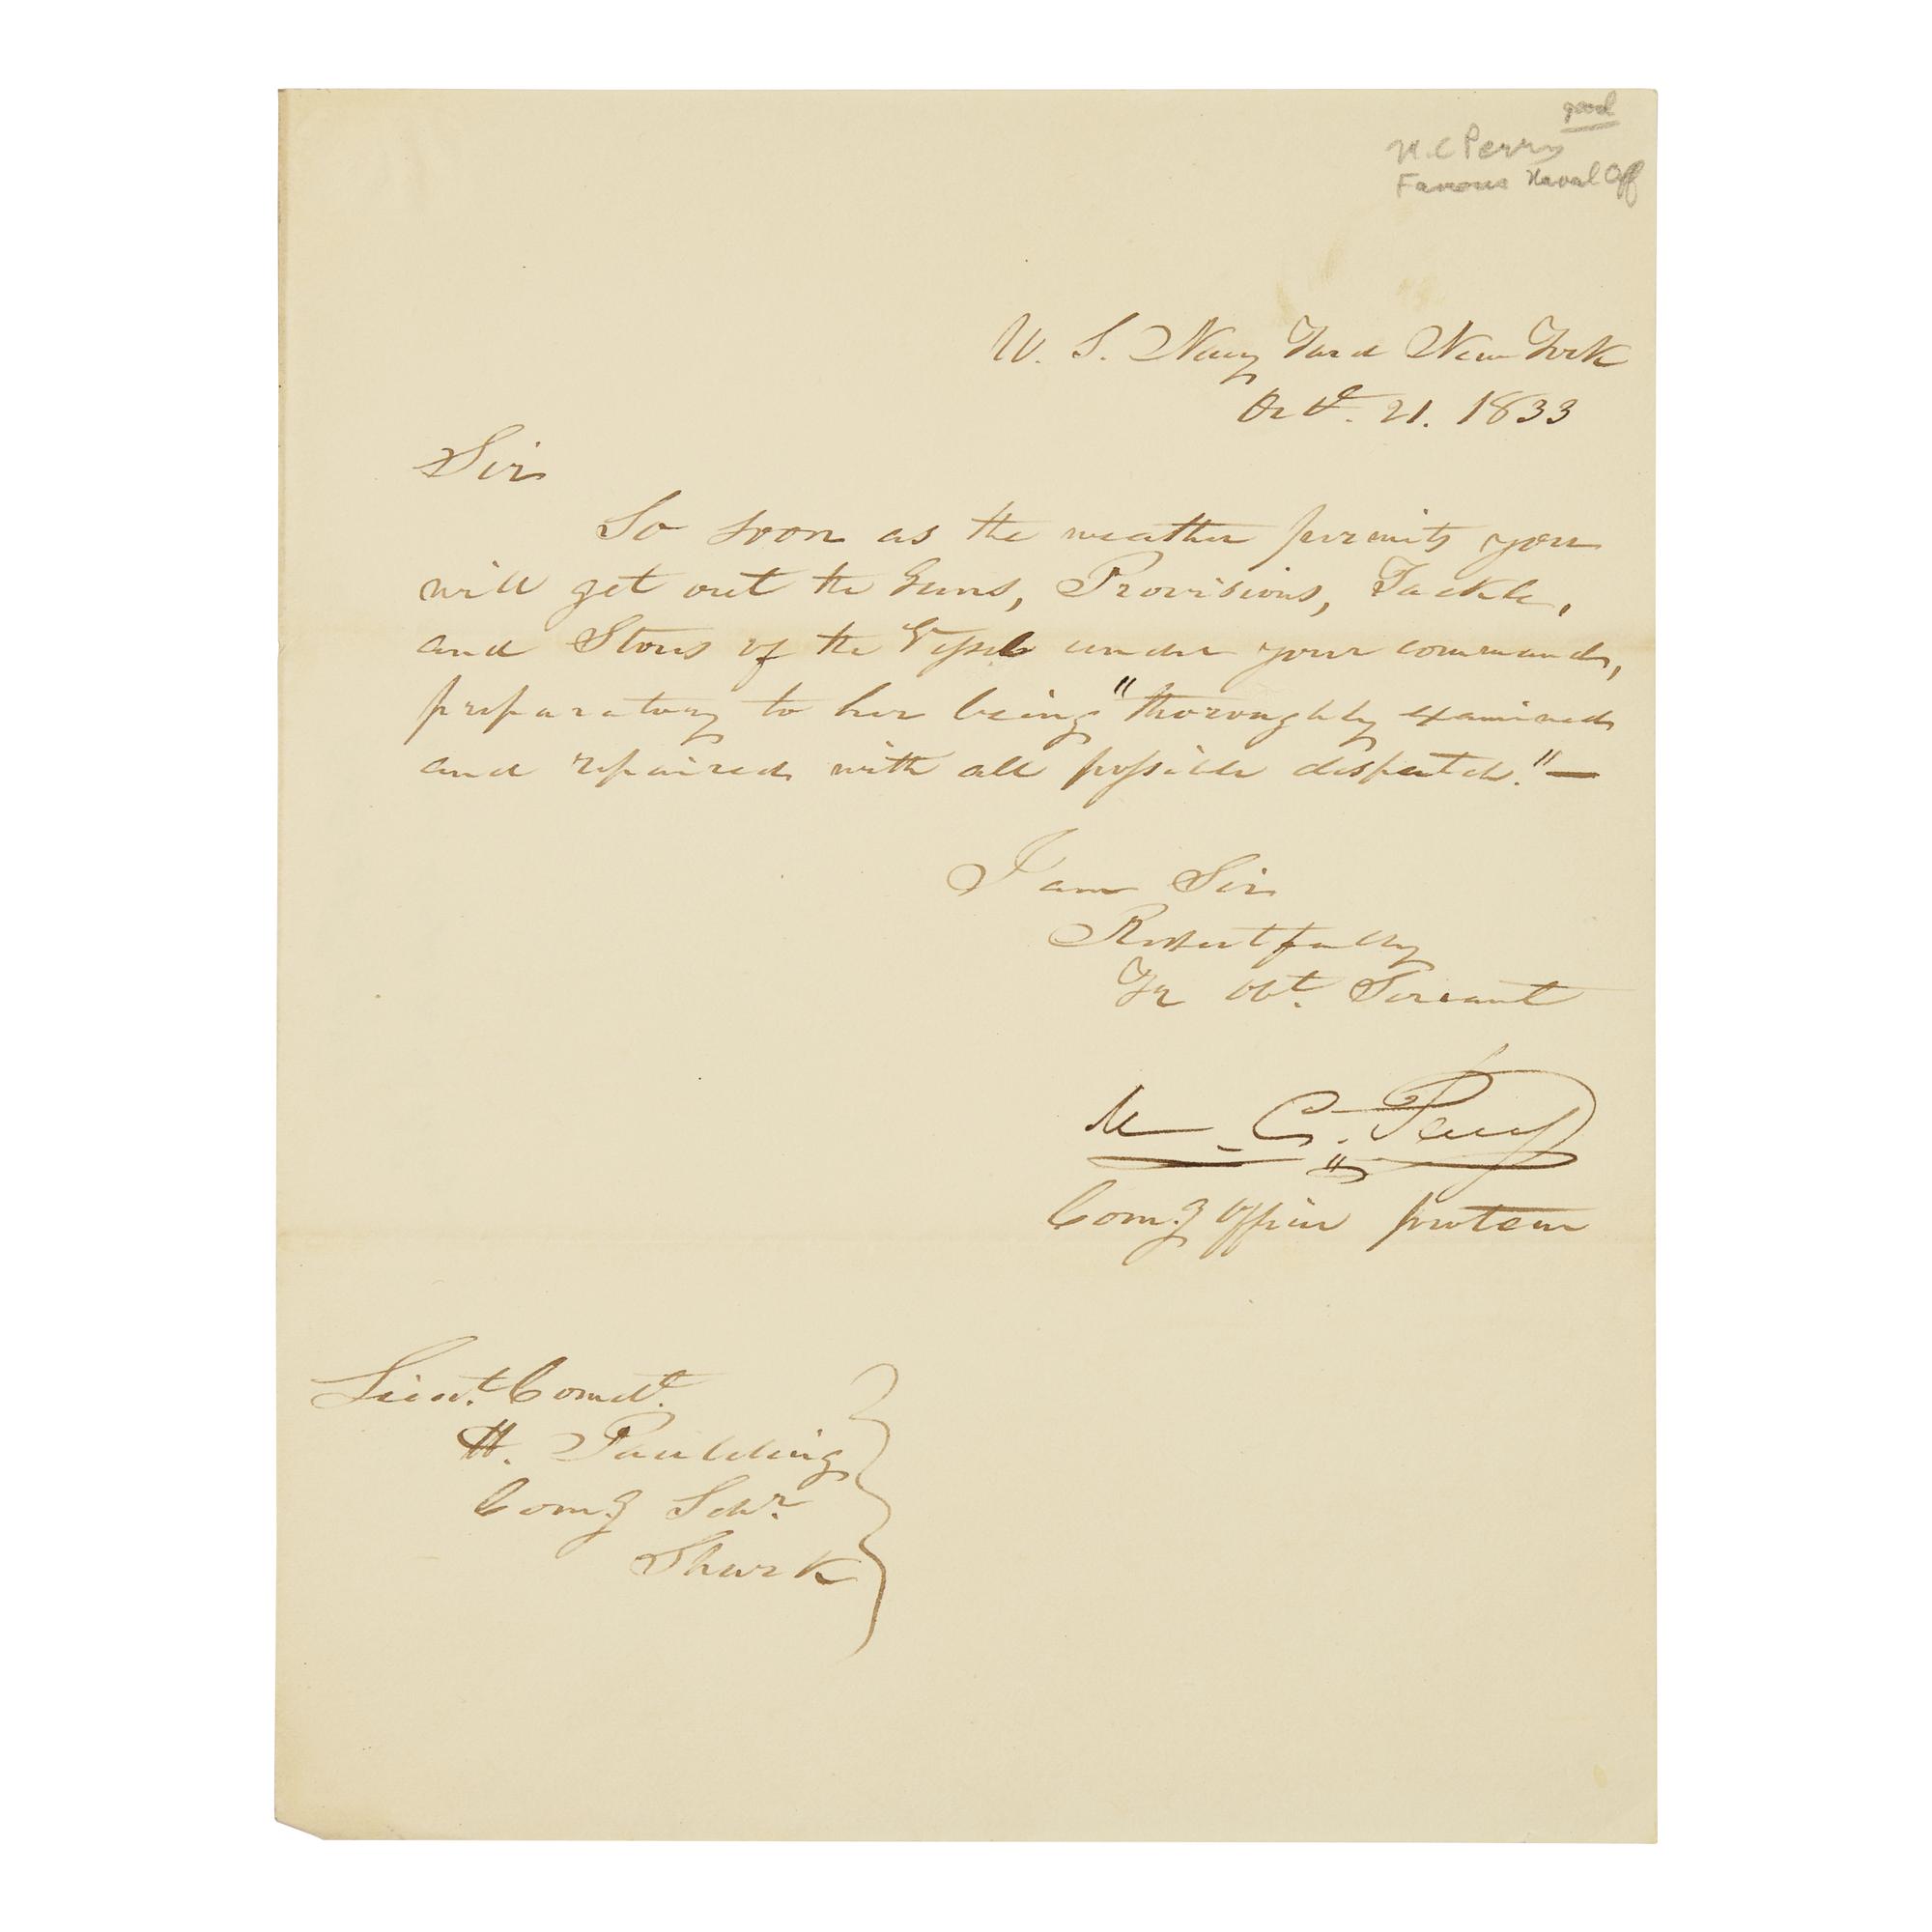 good
M.C Perry
Famous Naval Off
U. S. Navy Yard New York
Octr. 21. 1833
Sir
So soon as the weather permits you
will get out the Guns, Provisions, Tackle,
and Stores of the Vessel under your command,
preparatory to her being "thoroughly examined
and repaired with all possible despatch."—
I am Sir
Respectfully
Yr Obt. Servant
M. C. Perry
Comg Officer protem
Lieut. Comdt.
H. Paulding
Comg Schr.
Shark